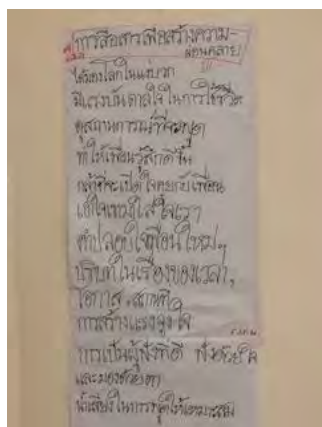 การสื่อสารเพื่อสร้างความ-
ผ่อนคลาย
ได้มองโลกในแง่บวก
มีแรงบันดาลใจในการใช้ชีวิต
ดูสถานการณ์ที่จะพูด
ทำให้เพื่อนรู้สึกดีขึ้น
กล้าที่จะเปิดใจคุยกับเพื่อน
เข้าใจ
คำปลอบใจเพื่อนใหม่ๆ
บริบทในเรื่องของเวลา,
โอกาส, สถานที่
การสร้างแรงจูงใจ
การเป็นผู้ฟังที่ดี ฟังด้วยใจ
และมองด้วยตา
น้ำเสียงในการพูดให้เหมาะสม